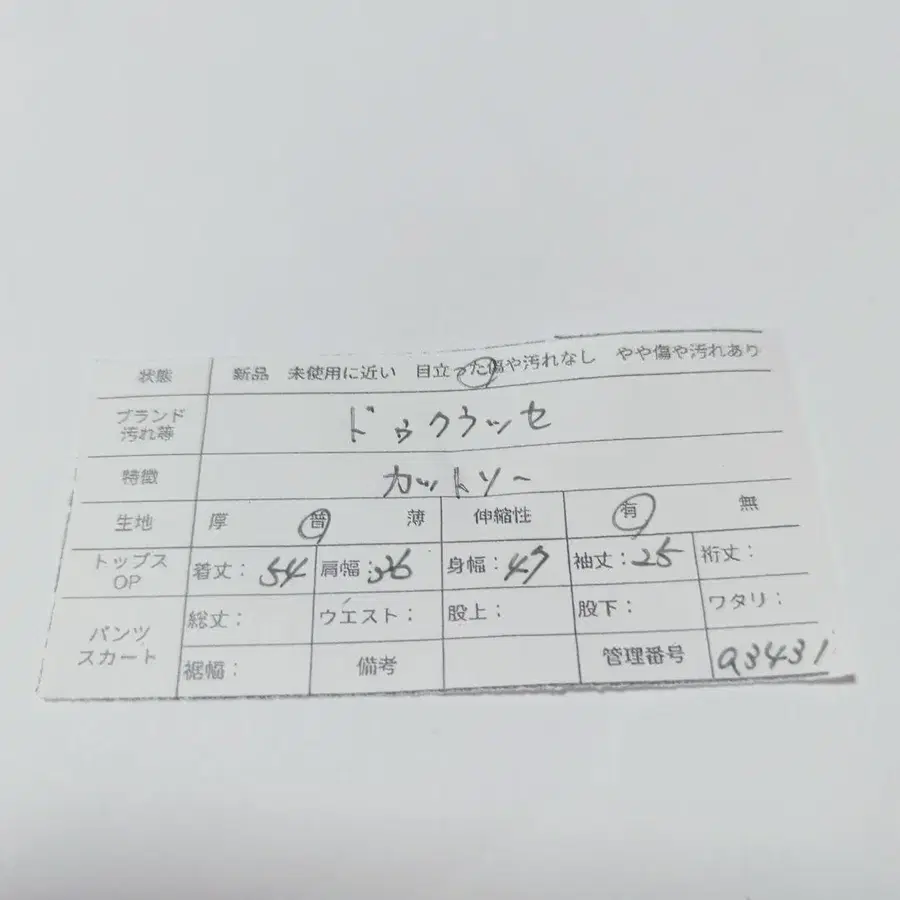 状態 新品 未使用に近い 目立った傷や汚れなし やや傷や汚れあり
ブランド 汚れ等 ドゥクラッセ
特徴 カットソー
生地 厚 普 薄 伸縮性 有 無
トップス OP 着丈：54 肩幅：36 身幅：47 袖丈：25 裄丈：
パンツ スカート 総丈： ウエスト： 股上： 股下： ワタリ：
裾幅： 備考 管理番号 a3431